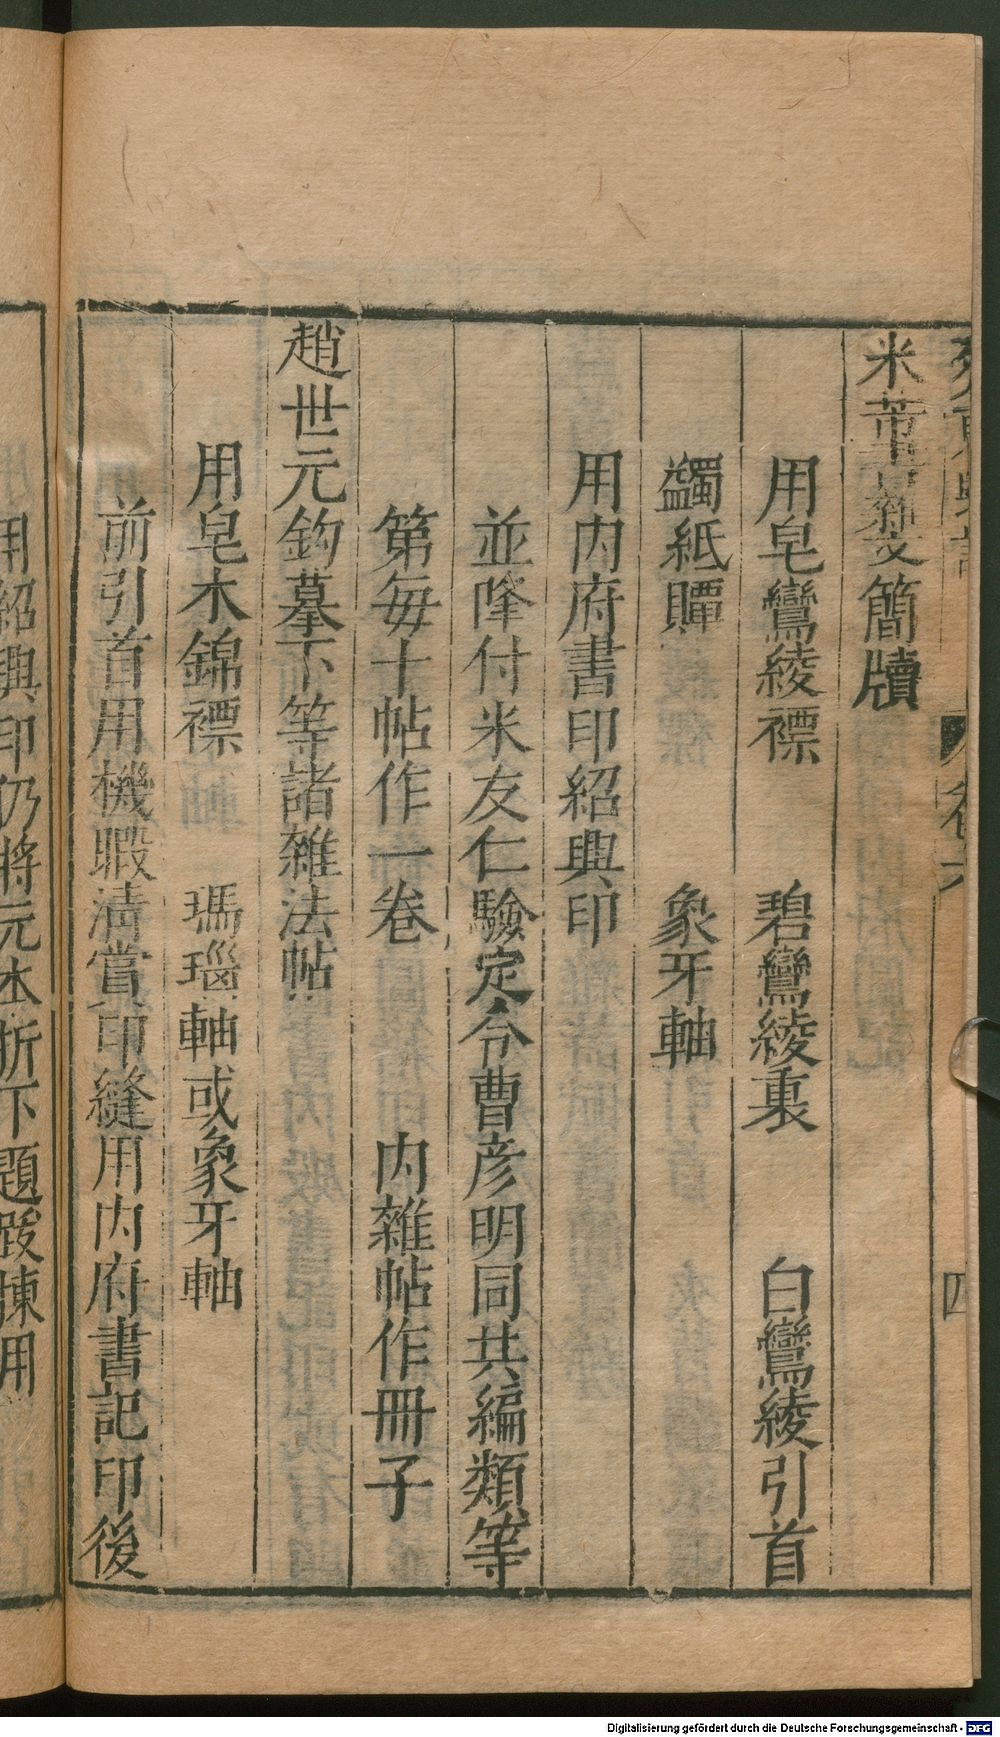 米芾書雜文簡牘
用皂鸞綾褾　碧鸞綾裏　白鸞綾引首
蠲紙贉　象牙軸
用内府書印紹興印
並降付米友仁驗定令曹彦明同共編類等
第每十帖作一卷　内雜帖作冊子
趙世元鈎摹下等諸雜法帖
用皂木錦褾　瑪瑙軸或象牙軸
前引首用機暇清賞印縫用内府書記印後
用紹興印仍將元本折下題跋揀用
卷六
四
Digitalisierung gefördert durch die Deutsche Forschungsgemeinschaft - DFG